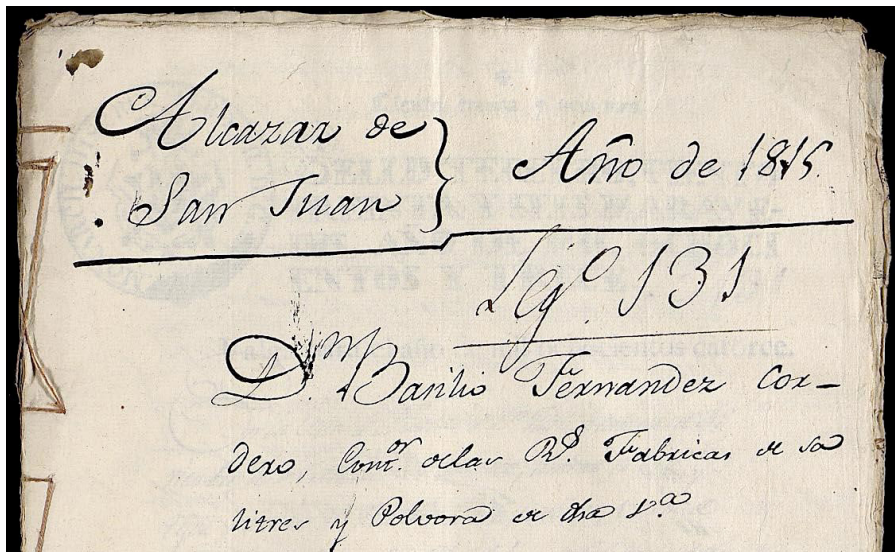 Alcazar de
San Juan
Año de 1815.
Lgº. 131
Dⁿ. Basilio Fernandez Cor-
dero, Contᵒʳ. delas Rˢ. Fabricas de sa
litres y Polvora de dha Vᵃ